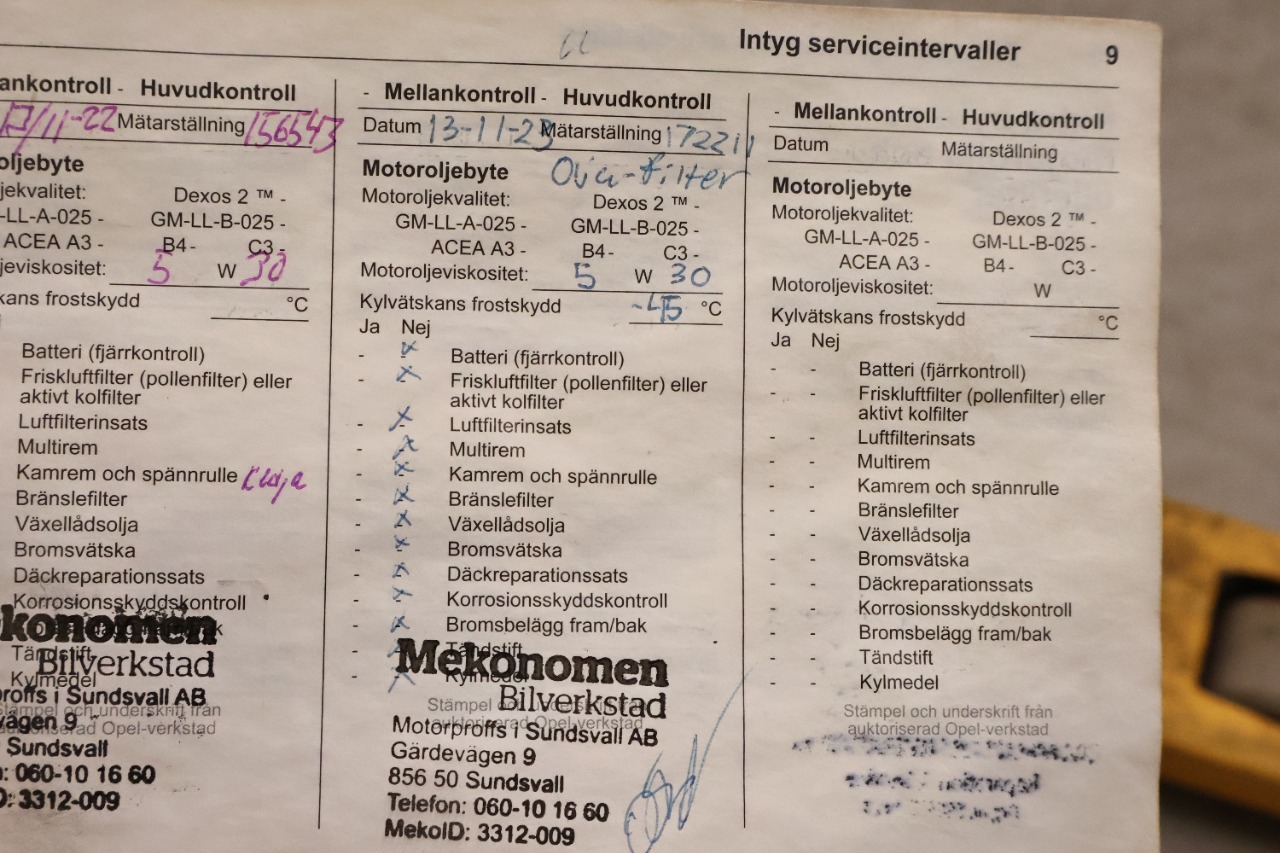 Intyg serviceintervaller 9
ankontroll - Huvudkontroll
17/11-22 Mätarställning 156543
oljebyte
jekvalitet: Dexos 2 ™ -
-LL-A-025 - GM-LL-B-025 -
ACEA A3 - B4 - C3 -
jeviskositet: 5 W 30
kans frostskydd °C
Batteri (fjärrkontroll)
Friskluftfilter (pollenfilter) eller
aktivt kolfilter
Luftfilterinsats
Multirem
Kamrem och spännrulle
Bränslefilter
Växellådsolja
Bromsvätska
Däckreparationssats
Korrosionsskyddskontroll
konomen
Tändstift
Bilverkstad
Kylmedel
proffs i Sundsvall AB
Stämpel och underskrift från
vägen 9
auktoriserad Opel-verkstad
Sundsvall
: 060-10 16 60
D: 3312-009
- Mellankontroll - Huvudkontroll
Datum 13-11-23 Mätarställning 172211
Motoroljebyte Olja-filter
Motoroljekvalitet: Dexos 2 ™ -
GM-LL-A-025 - GM-LL-B-025 -
ACEA A3 - B4 - C3 -
Motoroljeviskositet: 5 W 30
Kylvätskans frostskydd -45 °C
Ja Nej
- x Batteri (fjärrkontroll)
- x Friskluftfilter (pollenfilter) eller
aktivt kolfilter
- x Luftfilterinsats
- x Multirem
- x Kamrem och spännrulle
- x Bränslefilter
- x Växellådsolja
- x Bromsvätska
- x Däckreparationssats
- x Korrosionsskyddskontroll
- x Bromsbelägg fram/bak
- x Tändstift
Mekonomen
- x Kylmedel
Bilverkstad
Stämpel och underskrift från
auktoriserad Opel-verkstad
Motorproffs i Sundsvall AB
Gärdevägen 9
856 50 Sundsvall
Telefon: 060-10 16 60
MekoID: 3312-009
- Mellankontroll - Huvudkontroll
Datum Mätarställning
Motoroljebyte
Motoroljekvalitet: Dexos 2 ™ -
GM-LL-A-025 - GM-LL-B-025 -
ACEA A3 - B4 - C3 -
Motoroljeviskositet: W
Kylvätskans frostskydd °C
Ja Nej
- - Batteri (fjärrkontroll)
- - Friskluftfilter (pollenfilter) eller
aktivt kolfilter
- - Luftfilterinsats
- - Multirem
- - Kamrem och spännrulle
- - Bränslefilter
- - Växellådsolja
- - Bromsvätska
- - Däckreparationssats
- - Korrosionsskyddskontroll
- - Bromsbelägg fram/bak
- - Tändstift
- - Kylmedel
Stämpel och underskrift från
auktoriserad Opel-verkstad